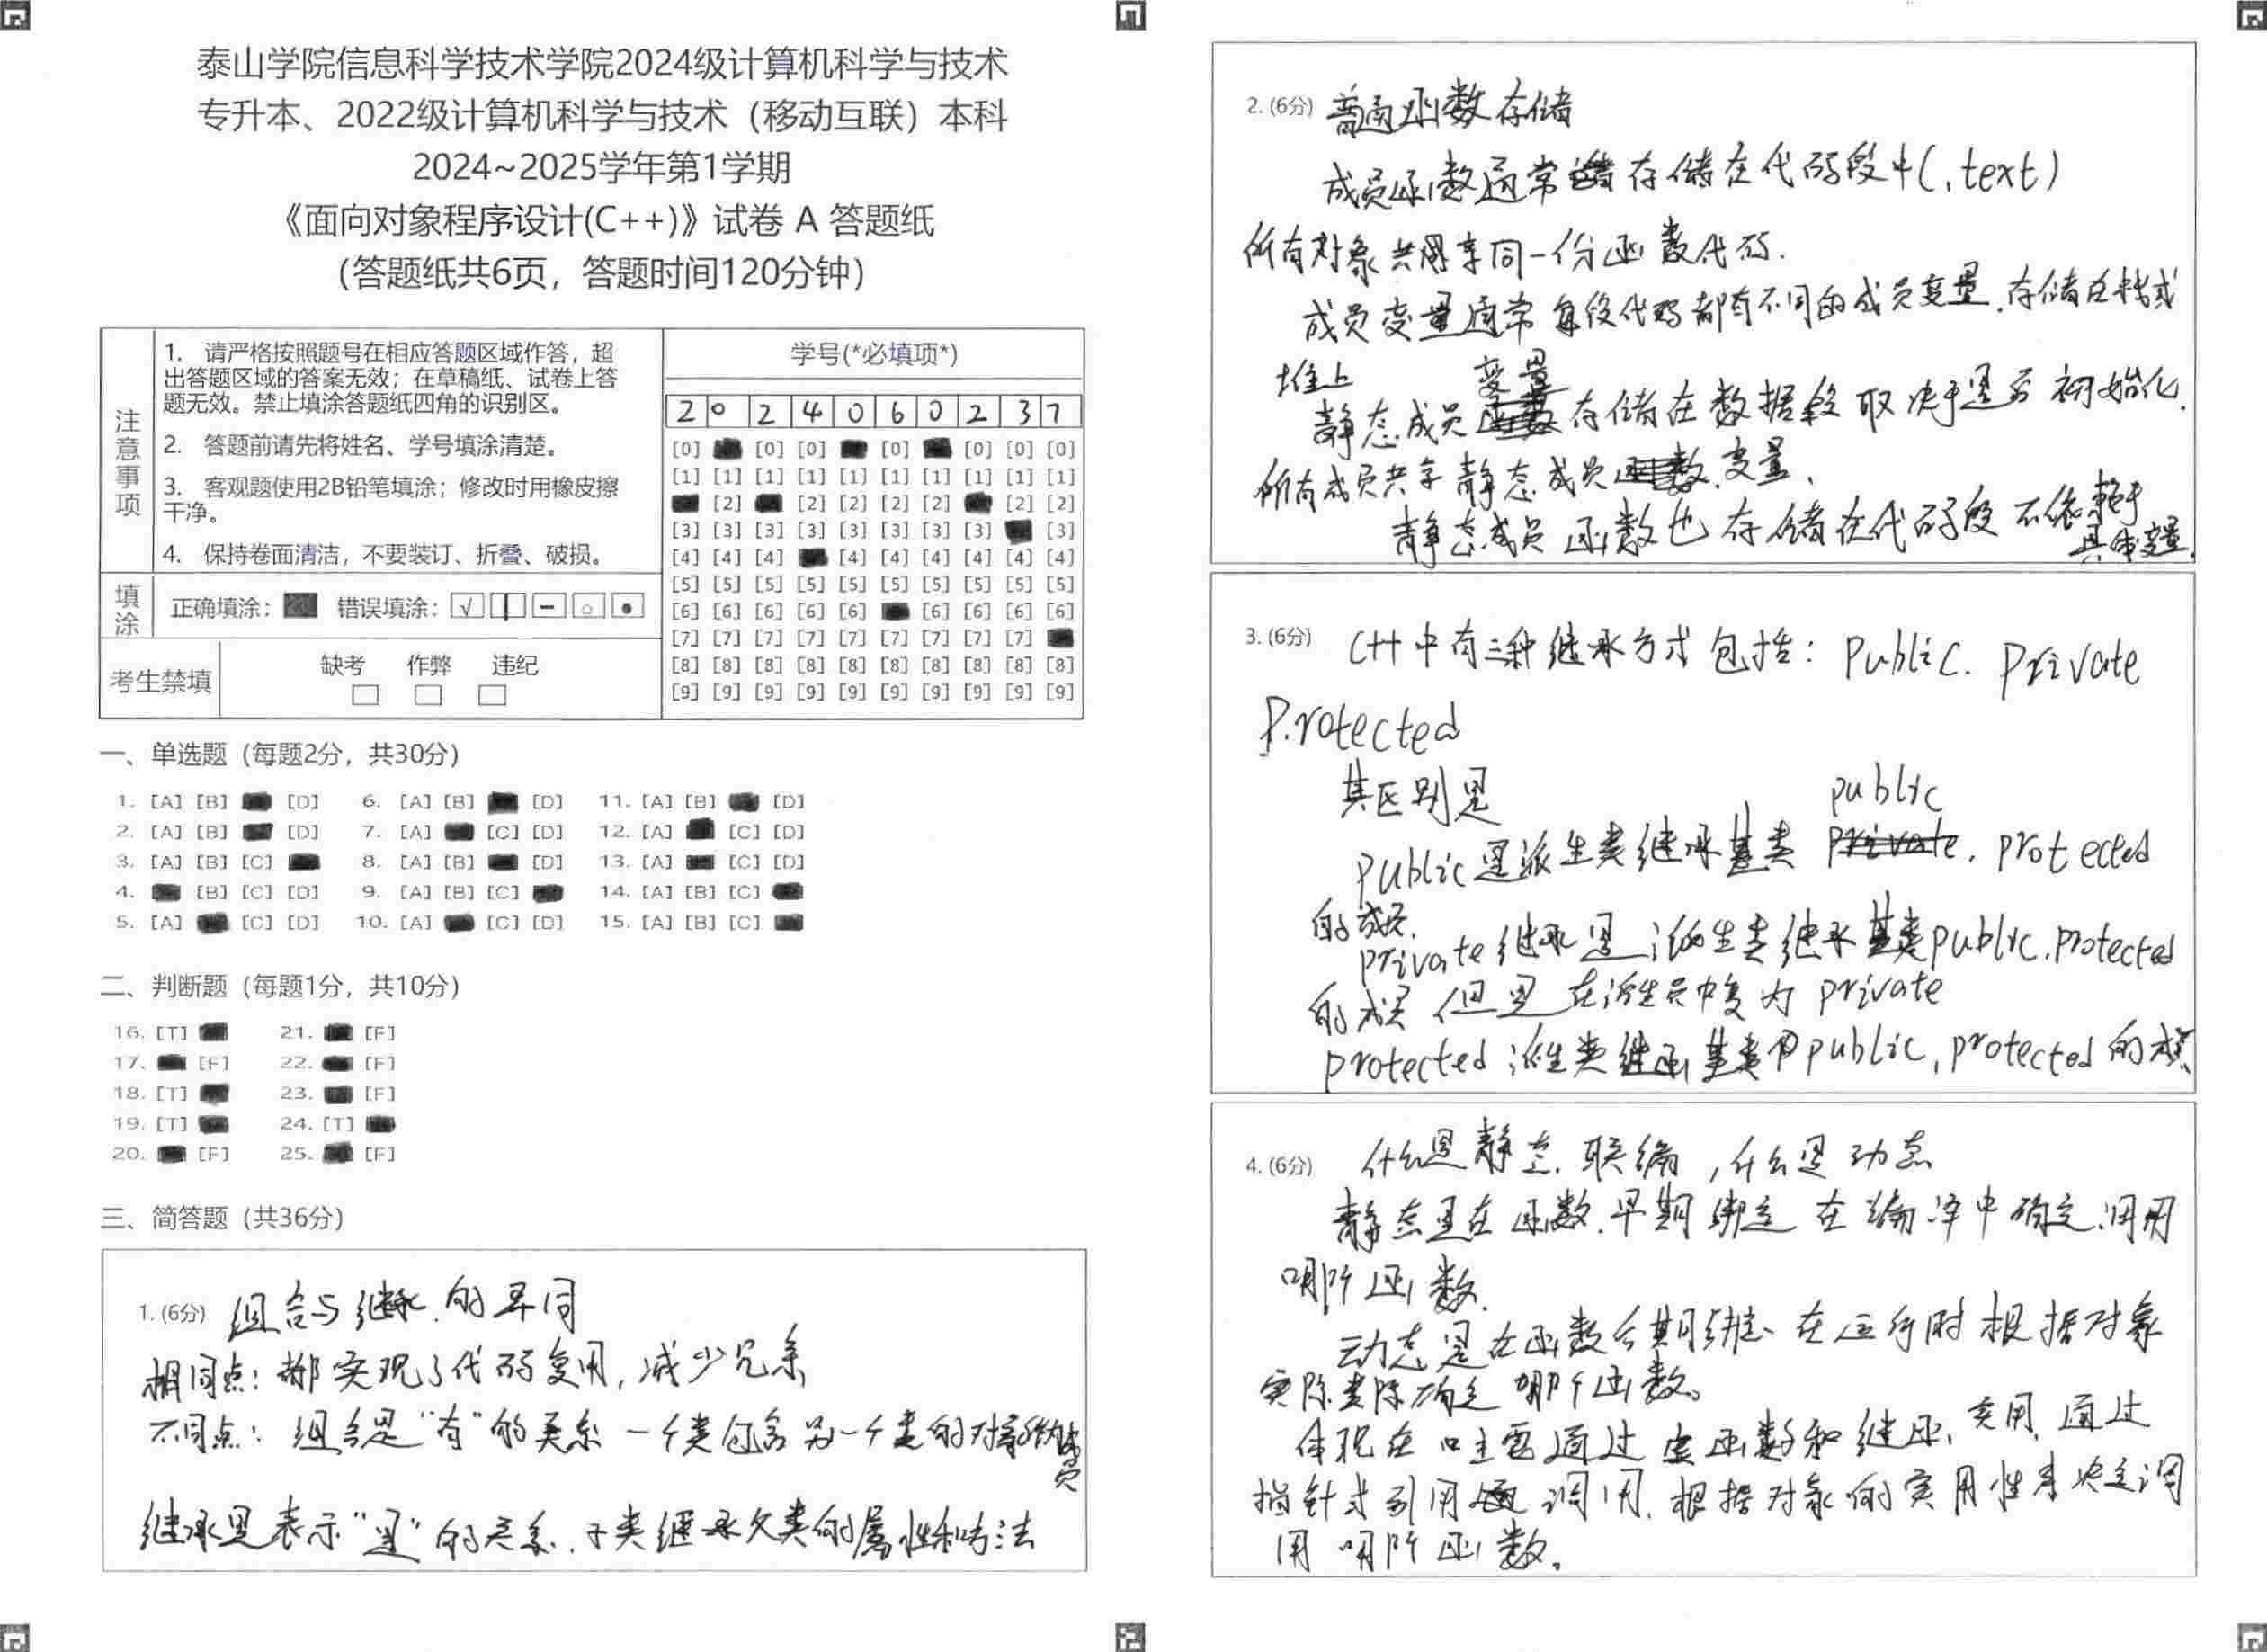 泰山学院信息科学技术学院2024级计算机科学与技术
专升本、2022级计算机科学与技术（移动互联）本科
2024~2025学年第1学期
《面向对象程序设计(C++)》试卷 A 答题纸
（答题纸共6页，答题时间120分钟）
注意事项
1. 请严格按照题号在相应答题区域作答，超
出答题区域的答案无效；在草稿纸、试卷上答
题无效。禁止填涂答题纸四角的识别区。
2. 答题前请先将姓名、学号填涂清楚。
3. 客观题使用2B铅笔填涂；修改时用橡皮擦
干净。
4. 保持卷面清洁，不要装订、折叠、破损。
填涂
正确填涂： 错误填涂：
考生禁填
缺考 作弊 违纪
学号(*必填项*)
2 0 2 4 0 6 0 2 3 7
[0] [0] [0] [0] [0] [0] [0]
[1] [1] [1] [1] [1] [1] [1] [1] [1] [1]
[2] [2] [2] [2] [2] [2] [2]
[3] [3] [3] [3] [3] [3] [3] [3] [3]
[4] [4] [4] [4] [4] [4] [4] [4] [4]
[5] [5] [5] [5] [5] [5] [5] [5] [5] [5]
[6] [6] [6] [6] [6] [6] [6] [6] [6]
[7] [7] [7] [7] [7] [7] [7] [7] [7]
[8] [8] [8] [8] [8] [8] [8] [8] [8] [8]
[9] [9] [9] [9] [9] [9] [9] [9] [9] [9]
一、单选题（每题2分，共30分）
1. [A] [B] [D] 6. [A] [B] [D] 11. [A] [B] [D]
2. [A] [B] [D] 7. [A] [C] [D] 12. [A] [C] [D]
3. [A] [B] [C] 8. [A] [B] [D] 13. [A] [C] [D]
4. [B] [C] [D] 9. [A] [B] [C] 14. [A] [B] [C]
5. [A] [C] [D] 10. [A] [C] [D] 15. [A] [B] [C]
二、判断题（每题1分，共10分）
16. [T] 21. [F]
17. [F] 22. [F]
18. [T] 23. [F]
19. [T] 24. [T]
20. [F] 25. [F]
三、简答题（共36分）
1. (6分) 组合与继承.的异同
相同点：都实现了代码复用，减少冗余
不同点：组合是"有"的关系 一个类包含另一个类的对象做成员
继承是表示"是"的关系.子类继承父类的属性和方法
2. (6分) 普通函数存储
成员函数通常存储在代码段中(.text)
所有对象共享同一份函数代码.
成员变量通常每段代码都有不同的成员变量.存储在栈或
堆上
静态成员变量存储在数据段取决于是否初始化.
所有成员共享静态成员变量.
静态成员函数也存储在代码段不依赖于
具体变量.
3. (6分) C++中有三种继承方式包括：public. private
protected
其区别是
public是派生类继承基类 public. protected
的成员.
private继承是派生类继承基类public.protected
的成员 但是在派生员中变为 private
protected 派生类继承基类中public,protected的成员
4. (6分) 什么是静态.联编，什么是动态
静态是在函数.早期绑定 在编译中确定.调用
哪个函数.
动态是在函数后期绑定、在运行时根据对象
实际类际确定 哪个函数。
体现在 主要通过虚函数和继承,实用,通过
指针或引用 调用.根据对象的实用性来决定调
用 哪个函数。